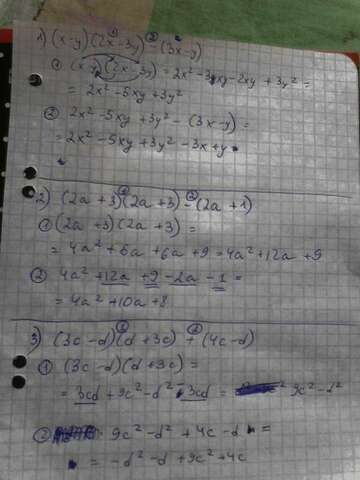 1) (x-y)(2x-3y)-(3x-y)
① (x-y)(2x-3y) = 2x²-3xy-2xy+3y² =
= 2x²-5xy+3y²
② 2x²-5xy+3y²-(3x-y) =
= 2x²-5xy+3y²-3x+y
2) (2a+3)(2a+3)-(2a+1)
① (2a+3)(2a+3) =
= 4a²+6a+6a+9 = 4a²+12a+9
② 4a²+12a+9-2a-1 =
= 4a²+10a+8
3) (3c-d)(d+3c)+(4c-d)
① (3c-d)(d+3c) =
= 3cd+9c²-d²-3cd = 9c²-d²
② 9c²-d²+4c-d =
= -d²-d+9c²+4c